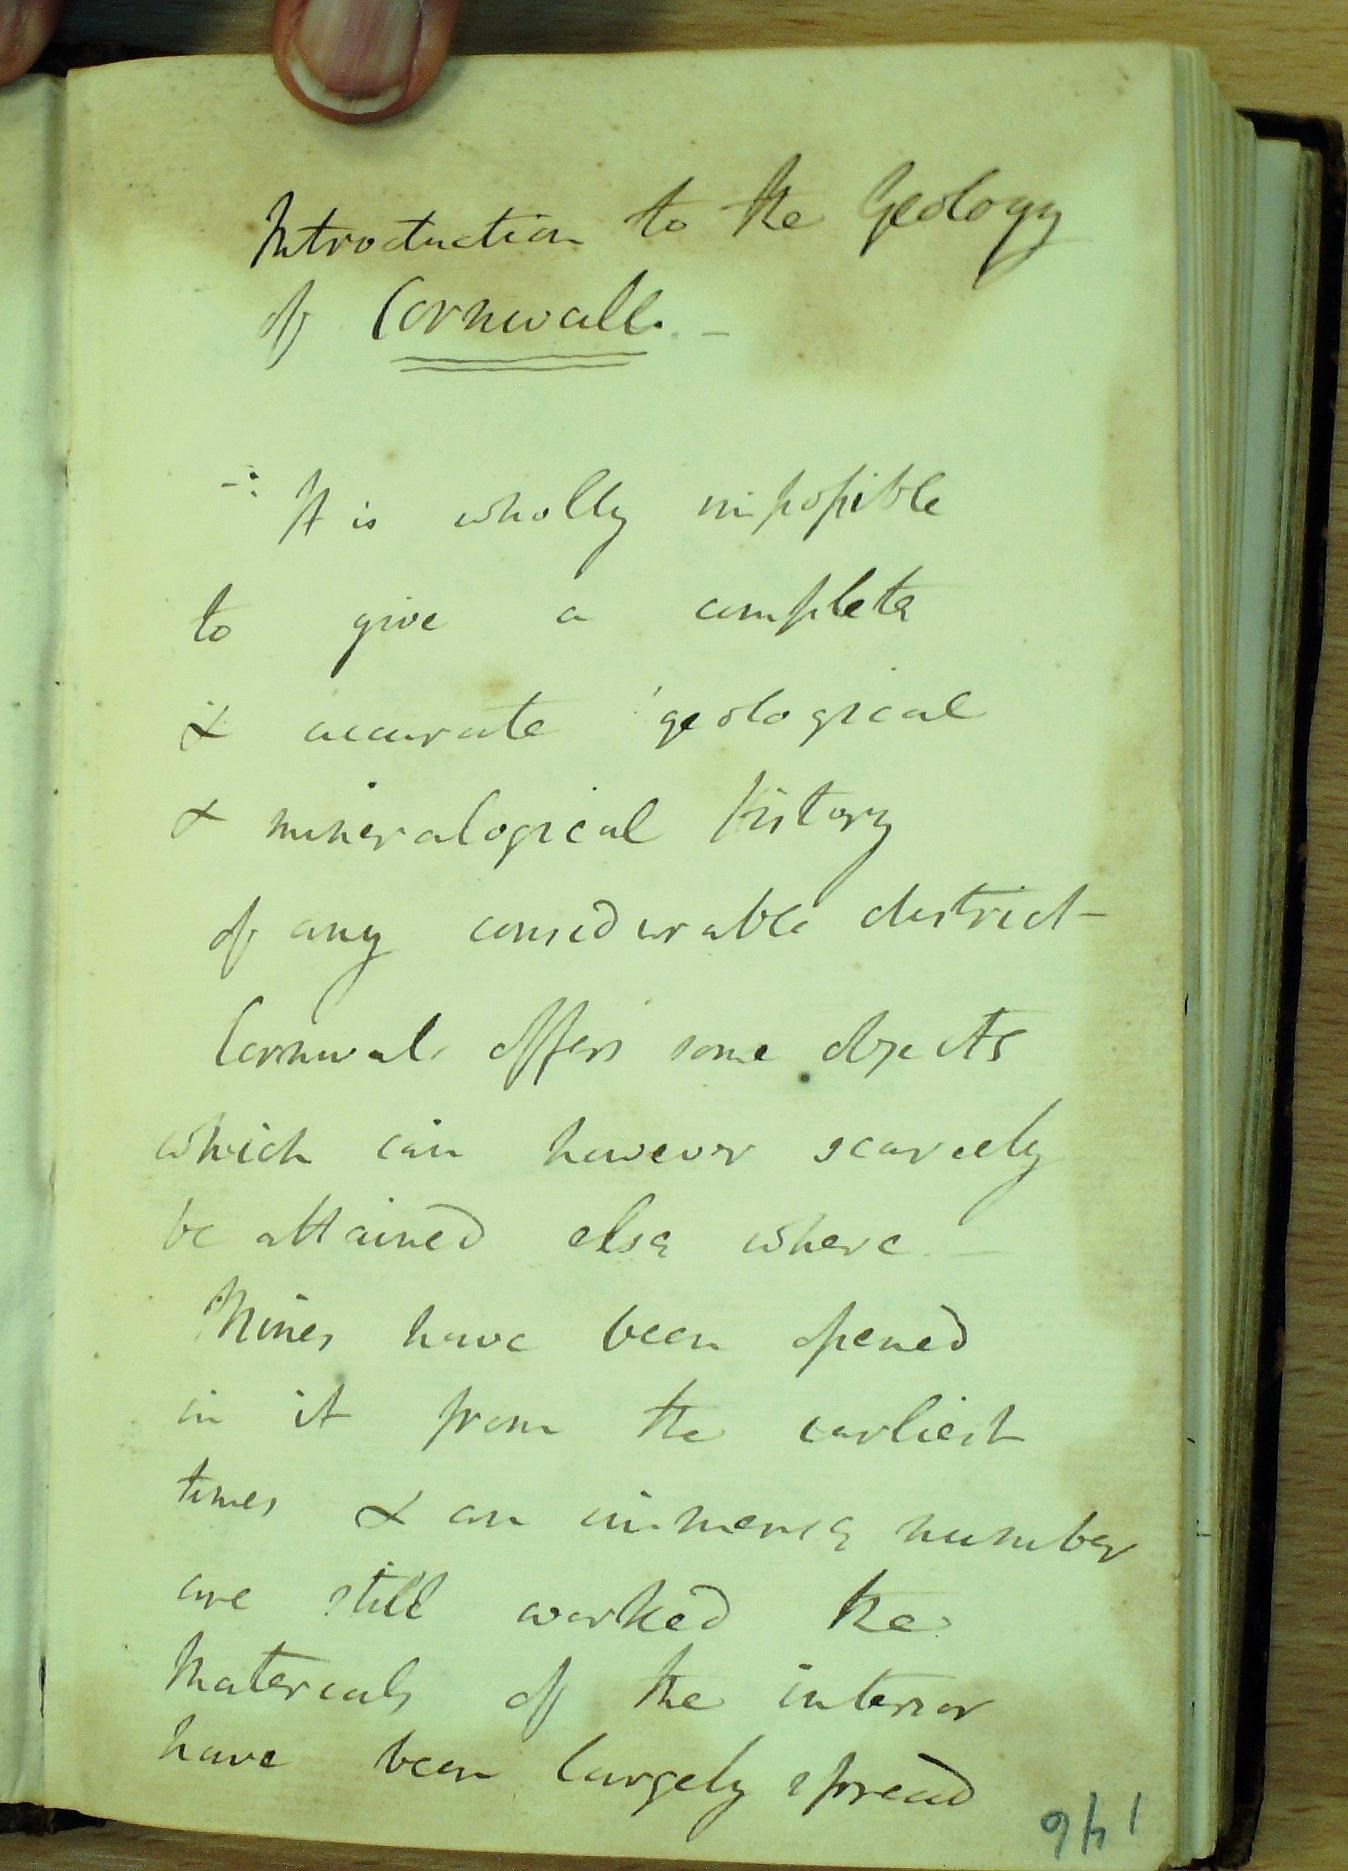 Introduction to the Geology
of Cornwall. -
-: It is wholly impossible
to give a complete
& accurate geological
& mineralogical history
of any considerable district -
Cornwal offers some objects
which can however scarcely
be attained else where. -
Mines have been opened
in it from the earliest
times & an immense number
are still worked the
materials of the interior
have been largely spread
146